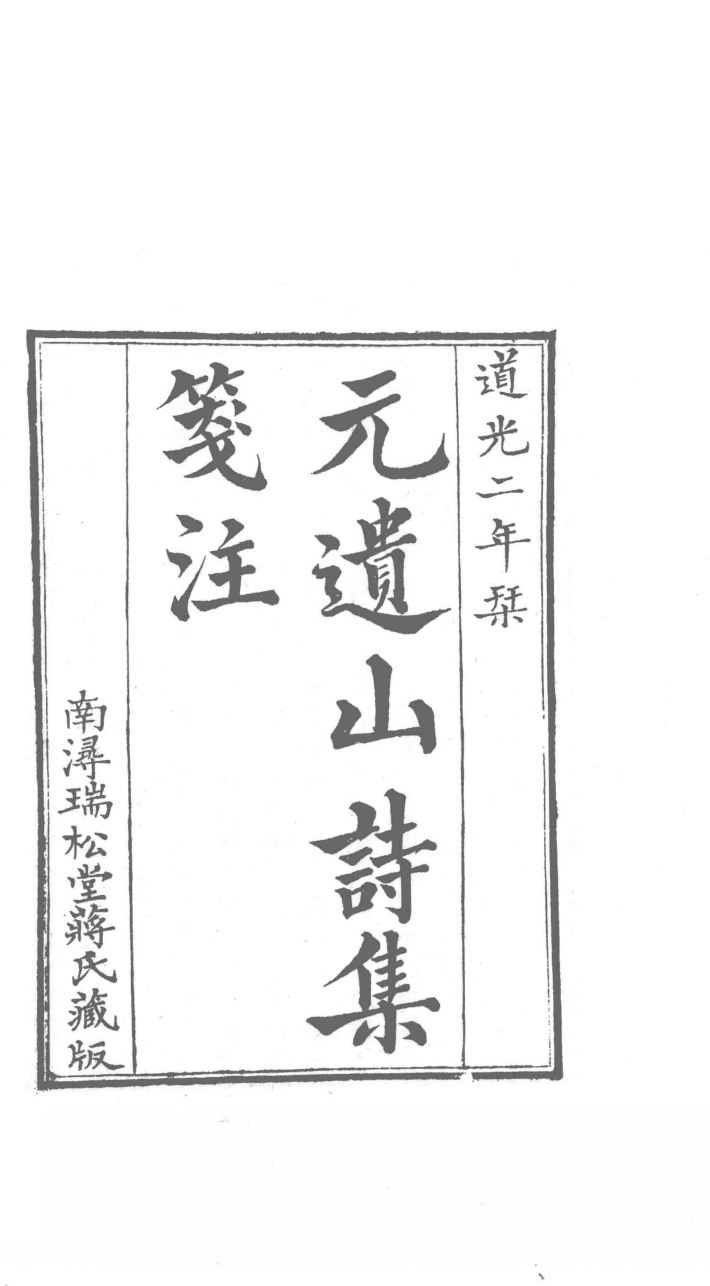 道光二年栞
元遺山詩集
箋注
南潯瑞松堂蔣氏藏版